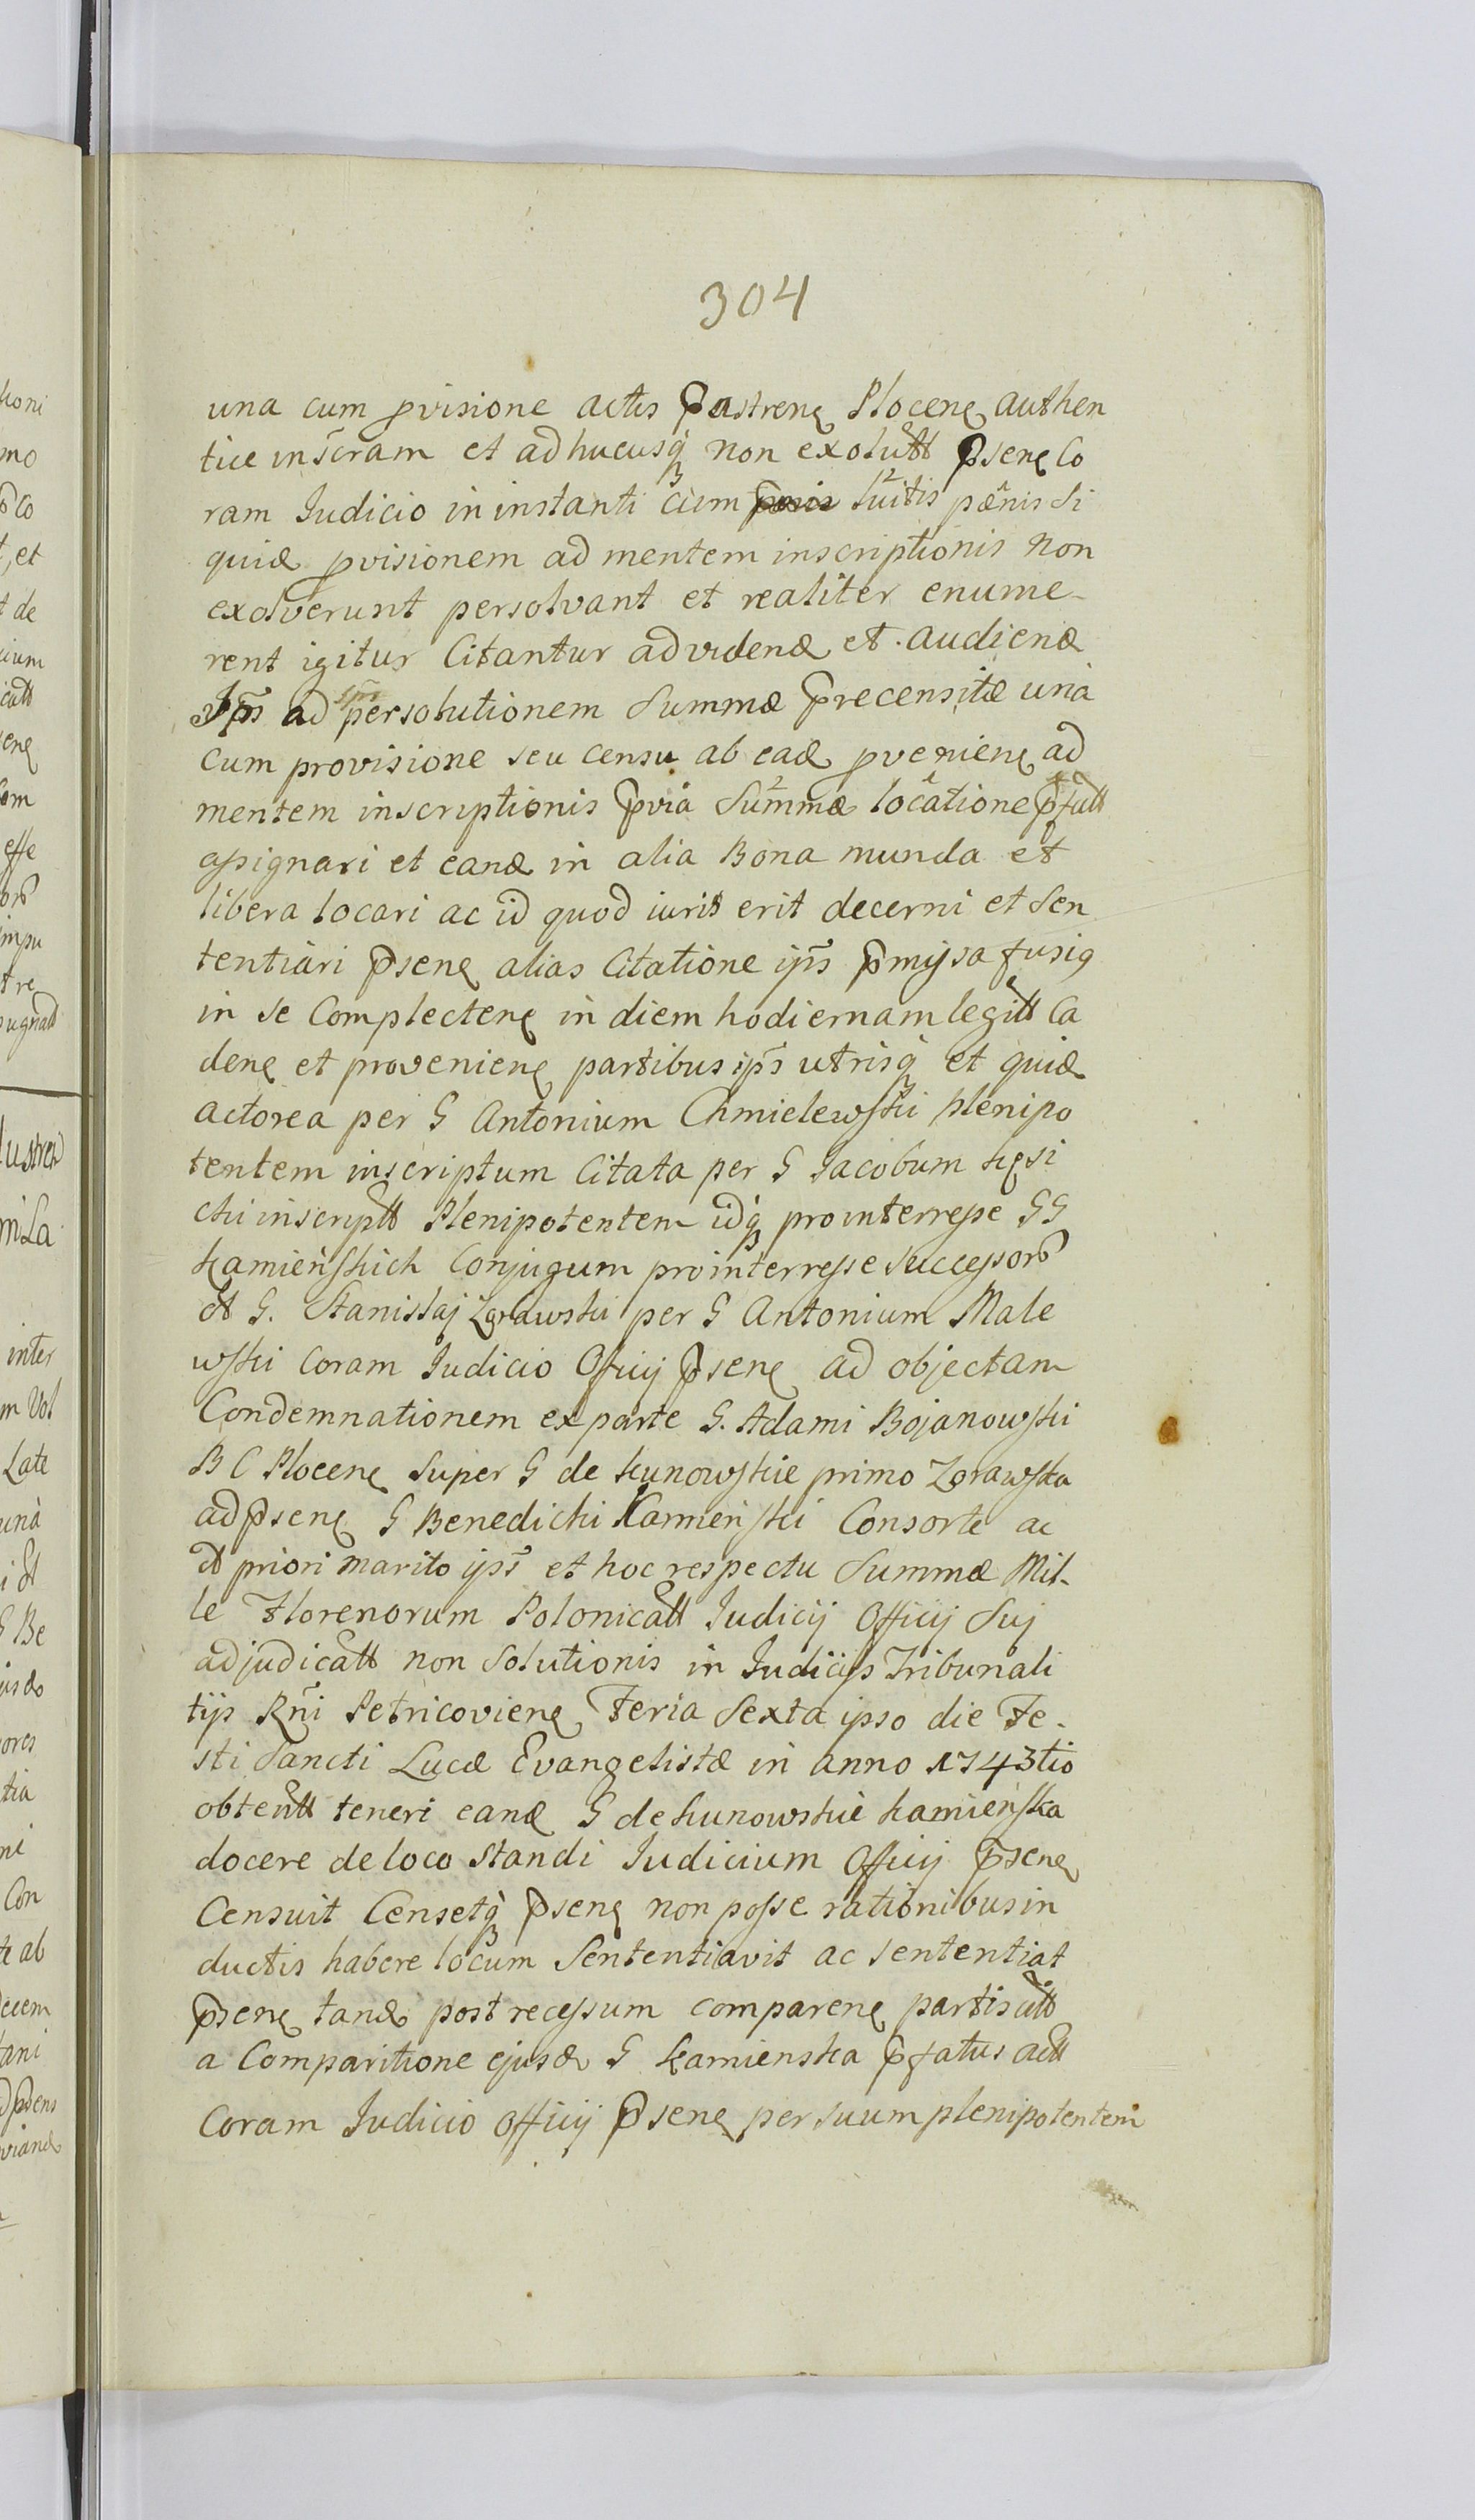 304
una cum pvisione actis Castrenę Plocenę authen
tice inscram et adhucusq non exolutt psenę Co
ram Iudicio in instanti cum luitis pænis Si
quid pvisionem ad mentem inscriptionis non
exolverunt persolvant et realiter enume-
rent igitur Citantur ad videnᵭ et audienᵭ
Ips ad ips persolutionem Summæ precensitæ una
cum provisione seu censu ab eaᵭ pvenienę ad
mentem inscriptionis pvia Summæ locatione pfatt
assignari et eanᵭ in alia Bona munda et
libera locari ac id quod iuris erit decerni et Sen
tentiari psenę alias Citatione ips pmissa fusiq
in se Complectenę in diem hodiernam legitt Ca
denę et provenienę partibus ips utrisq et quiᵭ
actorea per G Antonium Chmielewski plenipo
tentem inscriptum Citata per G Iacobum Kęsi
cki inscriptt Plenipotentem idq pro interresse GG
Kamieńskich Conjugum pro interresse Successorᵭ
et G. Stanislaj Zgrawski per G Antonium Male
wski Coram Iudicio Officij psenę ad objectam
Condemnationem ex parte G. Adami Bojanowski
B C Plocenę Super G de Kunowskie primo Zgrawska
ad psenę G Benedicti Kamieński Consorte ac
et priori marito ips et hoc respectu Summæ Mil-
le Florenorum Polonicatt Iudicij Officij Suj
adjudicatt non Solutionis in Iudicijs Tribunali
tijs Rni Petricovienę Feria Sexta ipso die Fe-
sti Sancti Lucæ Evangelistæ in anno 1743tio
obtentt teneri eanᵭ G de Kunowskie Kamieńska
docere de loco Standi Iudicium Officij psenę
Censuit Censetq psenę non posse rationibus in
ductis habere locum Sententiavit ac Sententiat
psenę tanᵭ post recessum comparenę partis citt
a Comparitione ejusᵭ G Kamienska pfatus actt
Coram Iudicio Officij psenę per suum plenipotentem